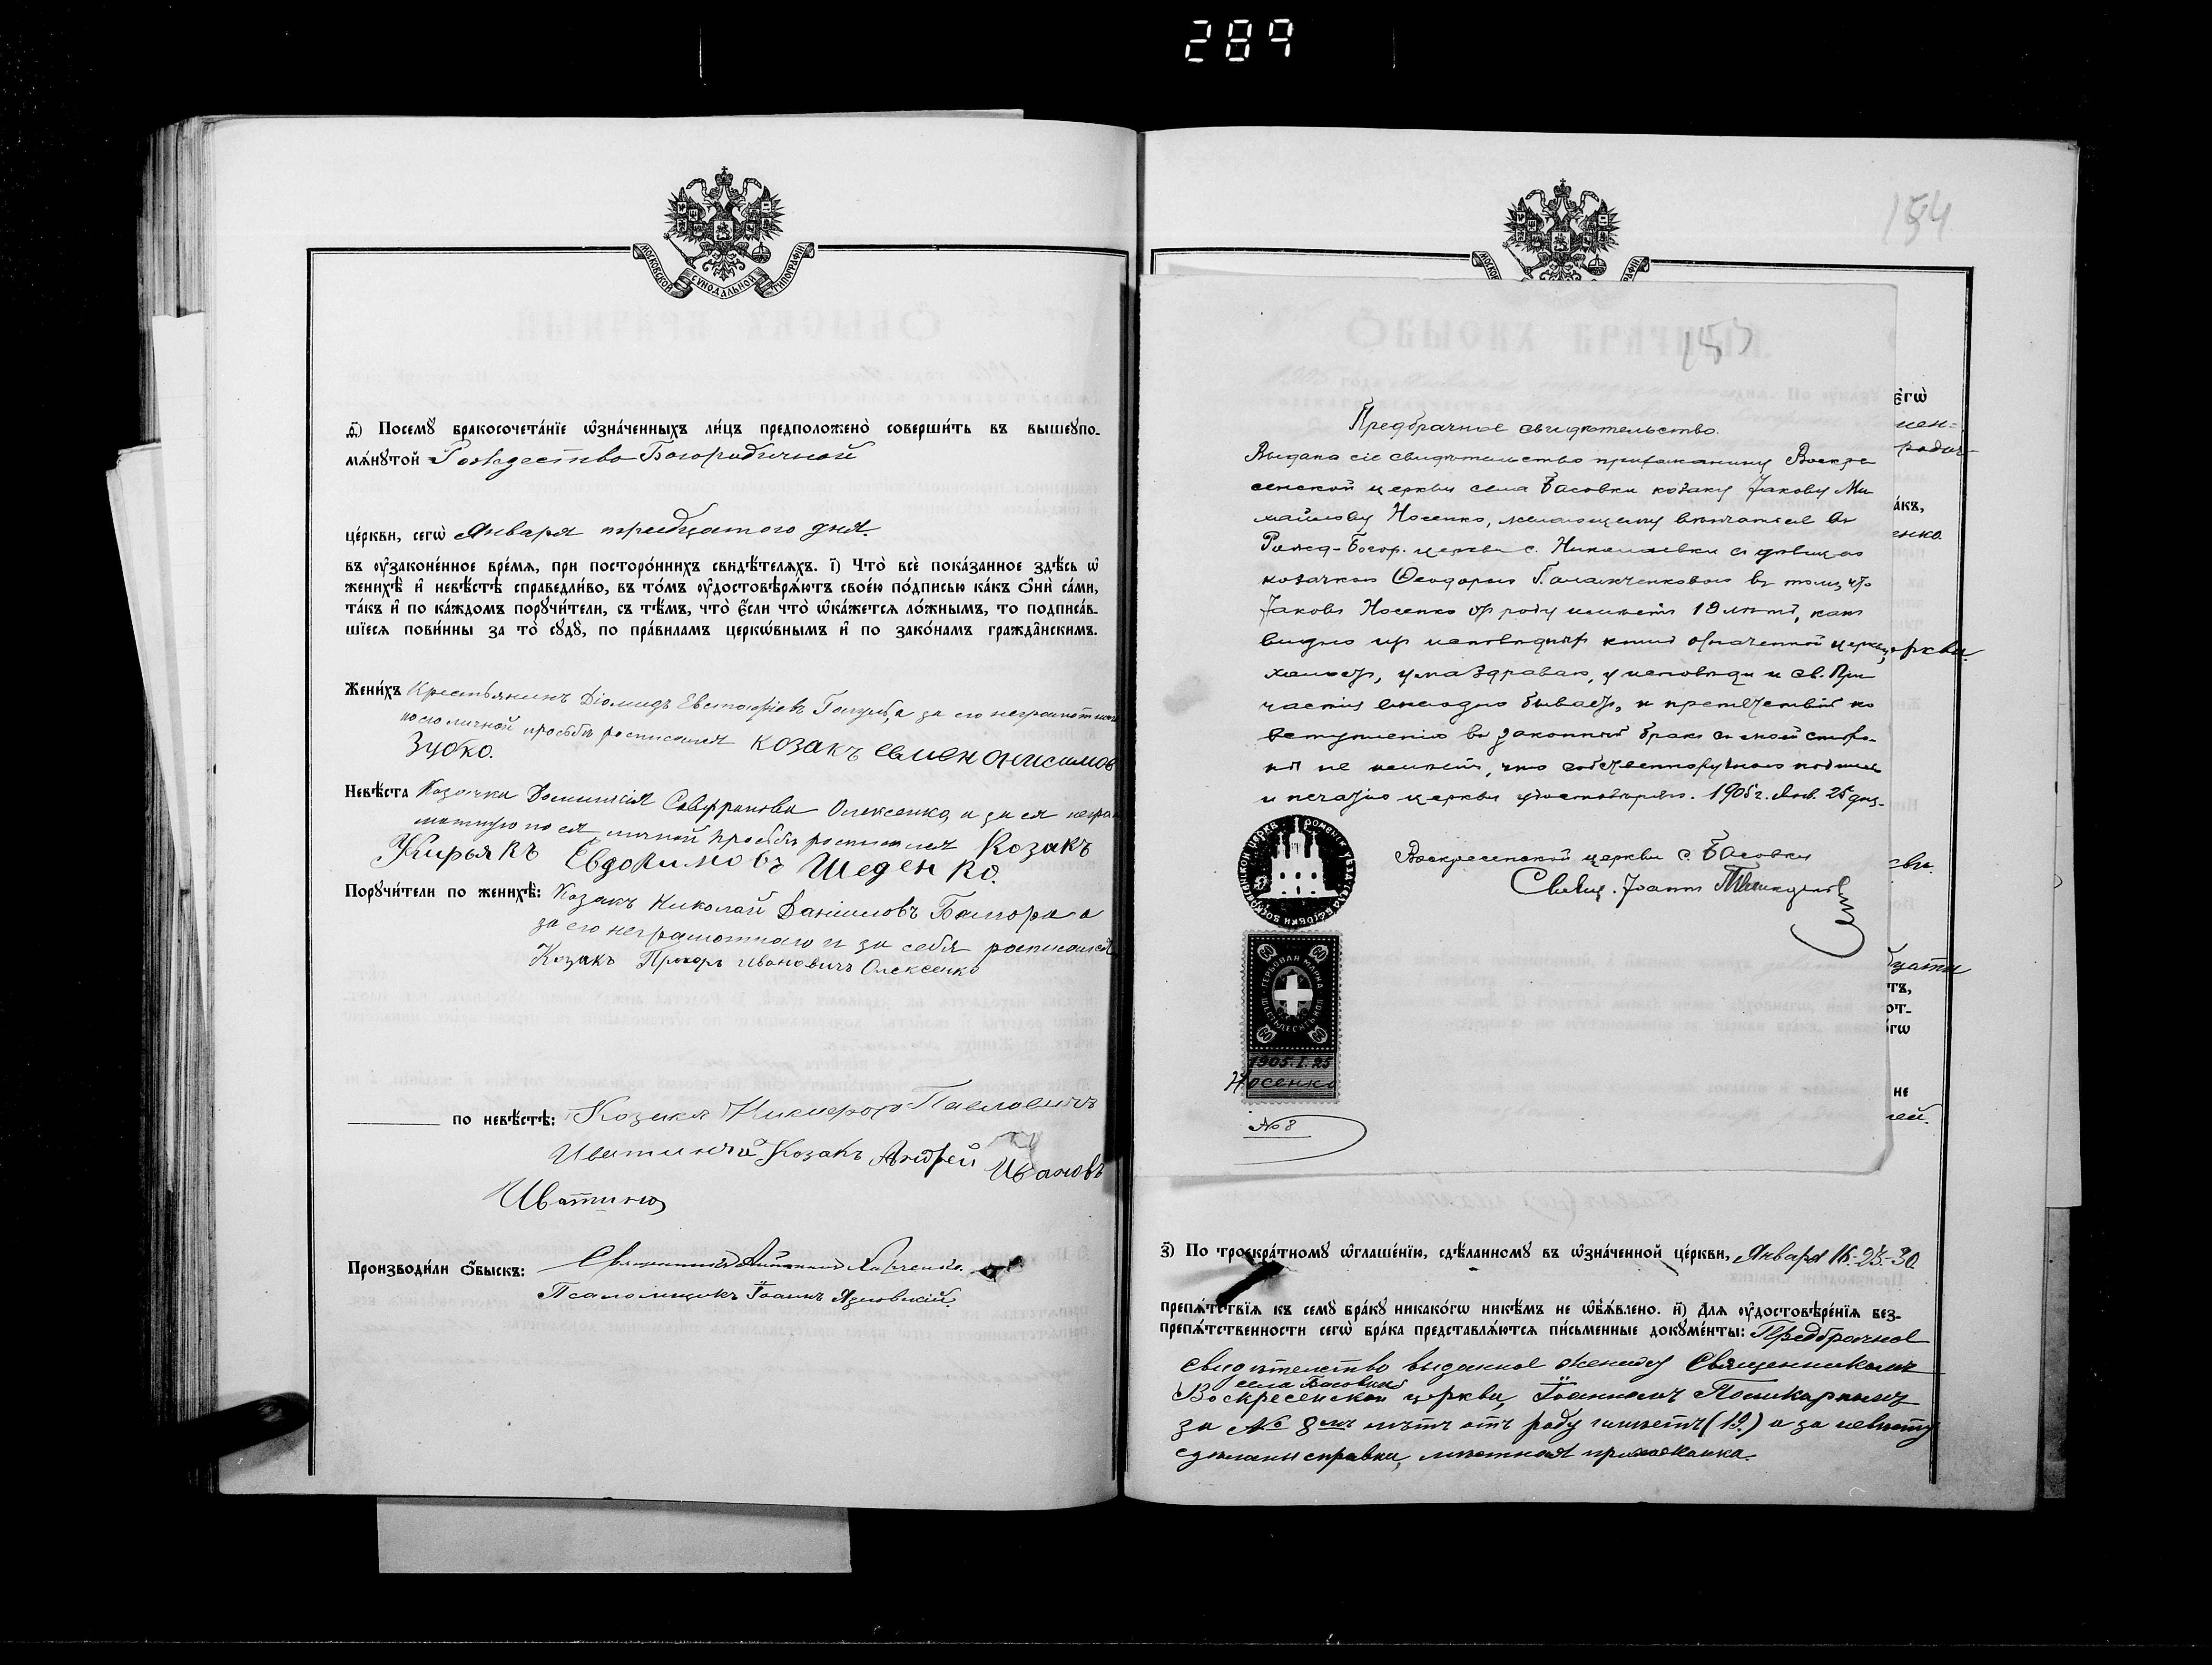 289
МОСКОВСКОЙ СѴНОДАЛЬНОЙ ТИПОГРАФІИ
д҃) Посемꙋ бракосочета́нїе ѡ҆зна́ченныхъ ли́цъ предположено̀ соверши́ть въ вышеꙋпо-
мѧ́нꙋтой Рождество-Богородичной
це́ркви, сегѡ̀ Января тридцатого дня.
въ ᲂу҆зако́ненное вре́мѧ, при посторо́ннихъ свидѣ́телѧхъ. і҃) Что̀ всѐ пока́занное здѣ́сь ѡ҆
женихѣ̀ и҆ невѣ́стѣ справедли́во, въ то́мъ ᲂу҆достовѣрѧ́ютъ свое́ю по́дписью ка́къ ѻ҆нѝ са́ми,
та́къ и҆ по ка́ждомъ порꙋчи́тели, съ тѣ́мъ, что̀ є҆́сли что̀ ѡ҆ка́жется ло́жнымъ, то подписа́в-
шїеся пови́нны за то̀ сꙋдꙋ̀, по пра́виламъ церкѡ́внымъ и҆ по зако́намъ гражда̑нскимъ.
Жени́хъ Крестьянинъ Діомидъ Евстафіевъ Голуб, а за его неграмотного
по его личной просьбѣ росписался козакъ семен онисимов
Зубко.
Невѣ́ста Козачка Домникія Олексенко, а за ея неграмотную
по ея личной просьбѣ росписался Козакъ
Кирьякъ Евдокимовъ Шеденко.
Порꙋчи́тели по женихѣ̀: Козакъ Николай Даніиловъ а
за его неграмотного и за себя росписался
Козакъ Прохоръ Ивановичъ Олексенко
по невѣ́стѣ: Козакъ Никифоръ Павловичъ
Козакъ Андрей Ивановъ
Производи́ли ѻ҆́быскъ: Священникъ Харченко.
Псаломщикъ Іоаннъ
154
МОСКОВ
РАФІИ
153
Предбрачное свидѣтельство.
Выдано сіе свидѣтельство прихожанину Воскре-
сенской церкви села Басовки козаку Іакову Ми-
хайлову Носенко, желающему вѣнчаться въ
Рожд-Богор. церкви с. Николаевки съ дѣвицею
козачкою Ѳеодорою въ томъ, что
Іаковъ Носенко отъ роду имѣетъ 19 лѣтъ, какъ
видно изъ исповѣдныхъ книгъ означенной церкви,
холостъ, ума здраваго, у исповѣди и св. При-
частія ежегодно бываетъ, и препятствій ко
вступленію въ законный бракъ съ моей сторо-
ны не имѣетъ, что собственноручною подписью
и печатью церкви удостовѣряю. 1905 г. Янв. 25 дня.
Воскресенской церкви с. Басовки
Свящ. Іоаннъ
ГЕРБОВАЯ МАРКА ШЕСТЬДЕСЯТЪ КОП
60 60 60 60
1905.I.25
Носенко
№ 8
є҆гѡ̀
а́къ,
енко
еркви.
тъ,
от-
гѡ
не
ей.
з҃) По троекра́тномꙋ ѡ҆глаше́нїю, сдѣ́ланномꙋ въ ѡ҆зна́ченной це́ркви, Января 16.-23.-30.
препѧ́тствїѧ къ семꙋ̀ бра́кꙋ никако́гѡ никѣ́мъ не ѡ҆бъѧ́влено. и҃) Для ᲂу҆достовѣре́нїѧ без-
препѧ́тственности сегѡ̀ бра́ка представлѧ́ются пи́сьменные докꙋме́нты: Предбрачное
свидѣтельство выданное жениху Священникомъ
села Басовки
Воскресенской церкви, Іоанномъ
за № 8мъ лѣтъ отъ роду имѣетъ (19.) а за невѣсту
сдѣланы справки, мѣстная прихожанка.